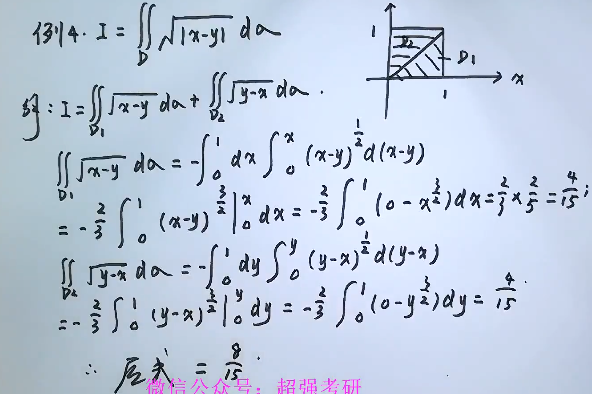 例4. I = ∬_D √|x-y| dσ
1
D₂
D₁
x
1
解: I = ∬_{D₁} √(x-y) dσ + ∬_{D₂} √(y-x) dσ.
∬_{D₁} √(x-y) dσ = -∫₀¹ dx ∫₀ˣ (x-y)^{1/2} d(x-y)
= -2/3 ∫₀¹ (x-y)^{3/2} |₀ˣ dx = -2/3 ∫₀¹ (0 - x^{3/2}) dx = 2/3 × 2/5 = 4/15;
∬_{D₂} √(y-x) dσ = -∫₀¹ dy ∫₀ʸ (y-x)^{1/2} d(y-x)
= -2/3 ∫₀¹ (y-x)^{3/2} |₀ʸ dy = -2/3 ∫₀¹ (0 - y^{3/2}) dy = 4/15.
∴ 原式 = 8/15.
微信公众号：超强考研